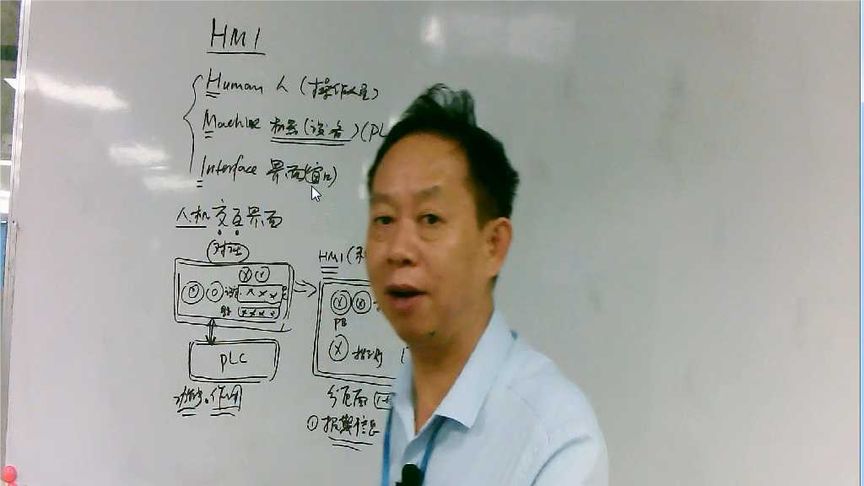 HMI
Human 人 (操作人员)
Machine 机器(设备)(PL
Interface 界面(窗口)
人机交互界面
对话
HMI(
PB
PLC
指示灯
功能.作用
分页面
① 报警信息